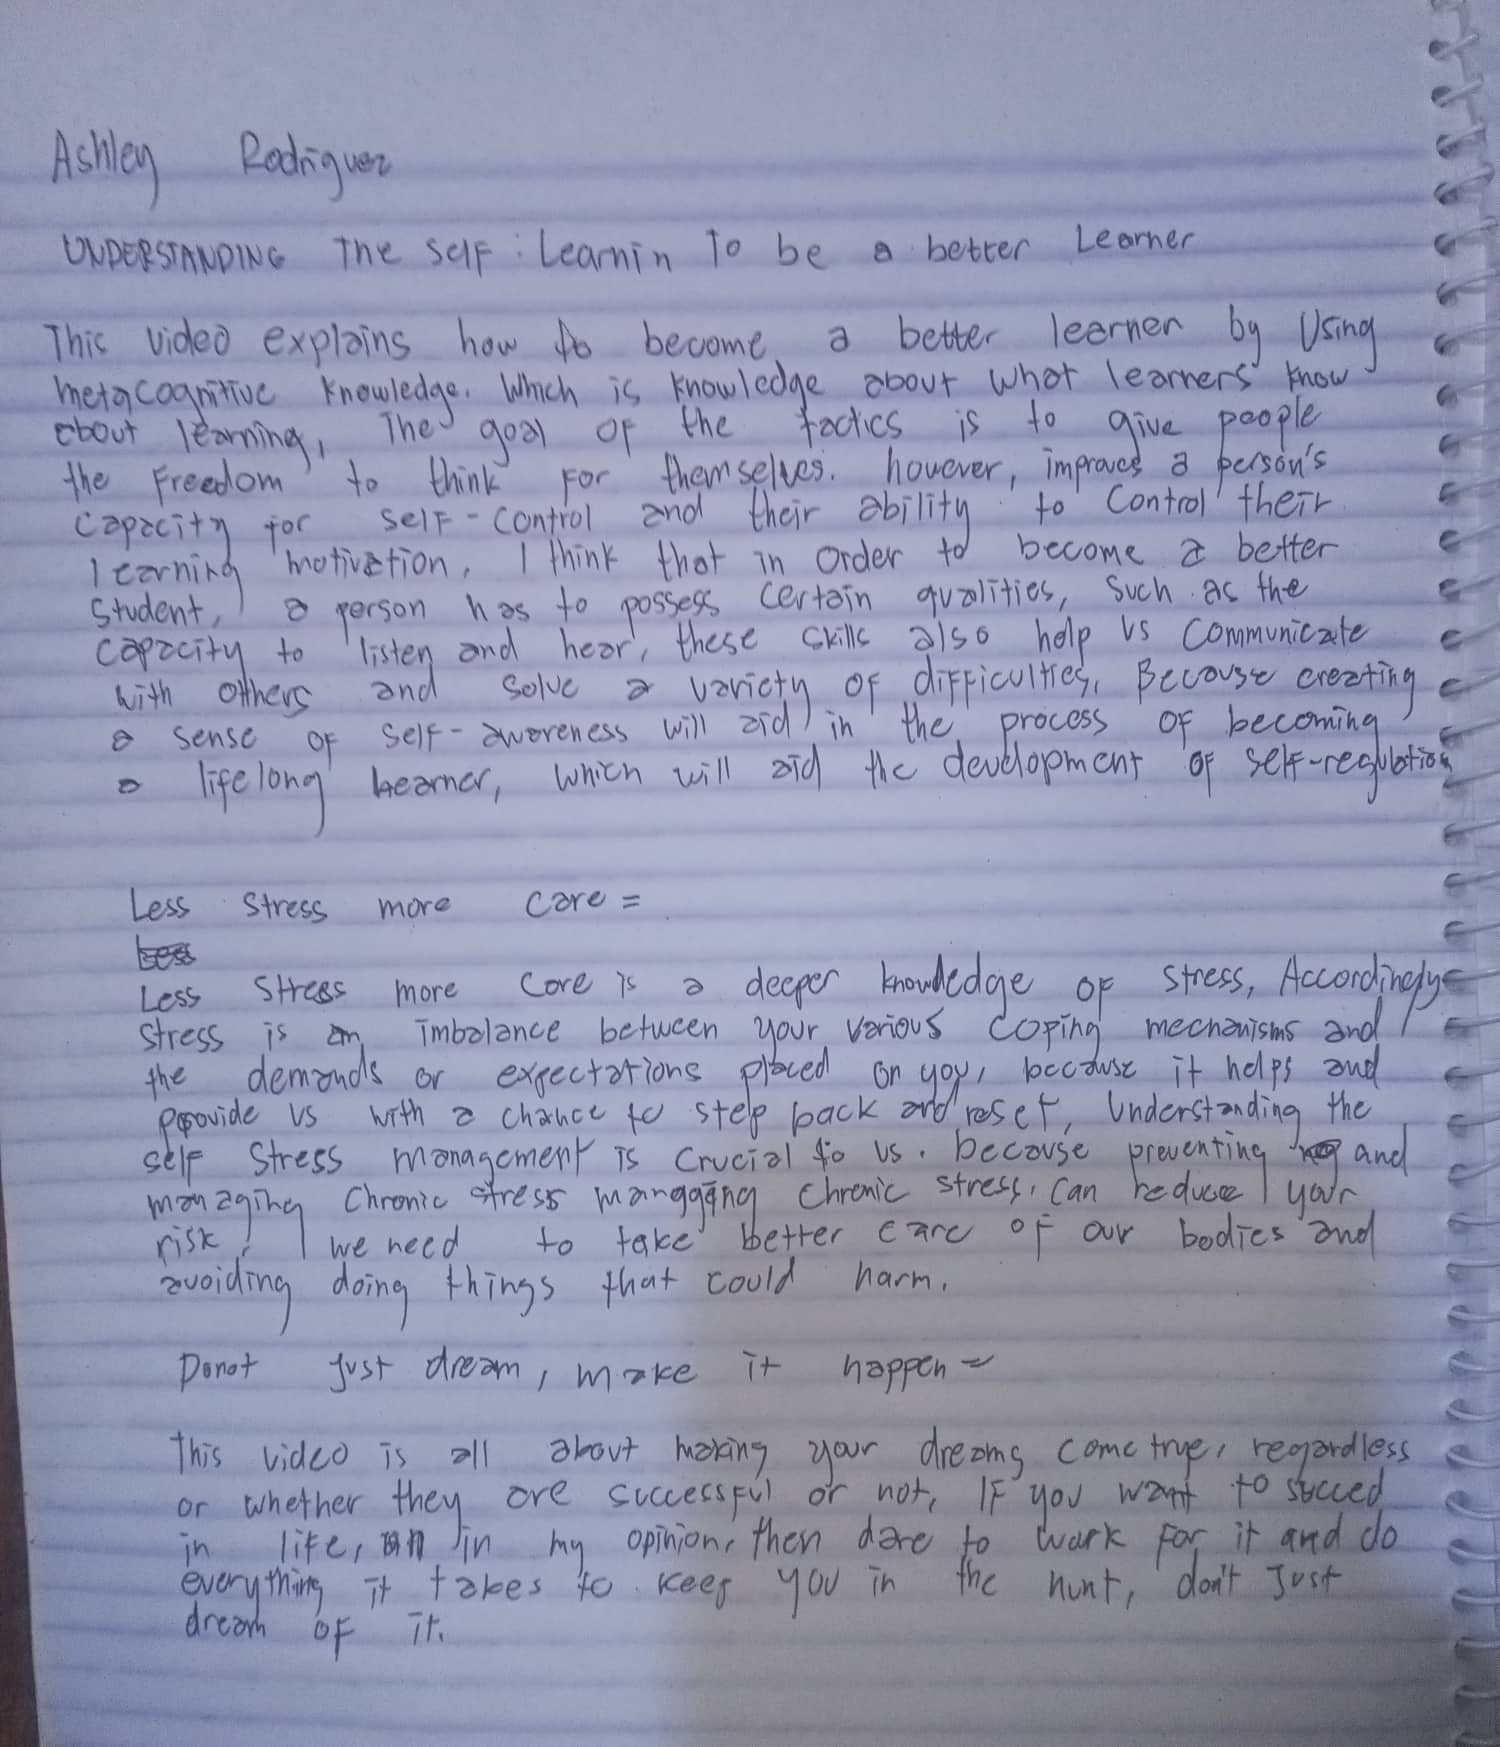 Ashley Rodriguez
UNDERSTANDING The Self : Learnin To be a better Learner
This video explains how to become a better learner by Using
metacognitive knowledge. Which is knowledge about what learners know
about learning, The goal of the tactics is to give people
the Freedom to think For themselves. however, improves a person's
capacity for self-control and their ability to control their
learning motivation, I think that in order to become a better
student, a person has to possess certain qualities, such as the
capacity to listen and hear, these skills also help us communicate
with others and solve a variety of difficulties, Because creating
a sense of self-awareness will aid in the process of becoming
a lifelong learner, which will aid the development of self-regulation
Less Stress more Care =
Less Stress more Care is a deeper knowledge of stress, Accordingly
stress is an imbalance between your various coping mechanisms and
the demands or expectations placed on you, because it helps and
provide us with a chance to step back and reset, Understanding the
self stress management is crucial to us. because preventing and
managing chronic stress manggang chronic stress, can reduce your
risk, we need to take better care of our bodies and
avoiding doing things that could harm.
Donot just dream, make it happen =
This video is all about making your dreams come true, regardless
or whether they are successful or not, IF you want to succed
in life, in my opinion, then dare to work for it and do
everything it takes to keep you in the hunt, don't Just
dream of it.